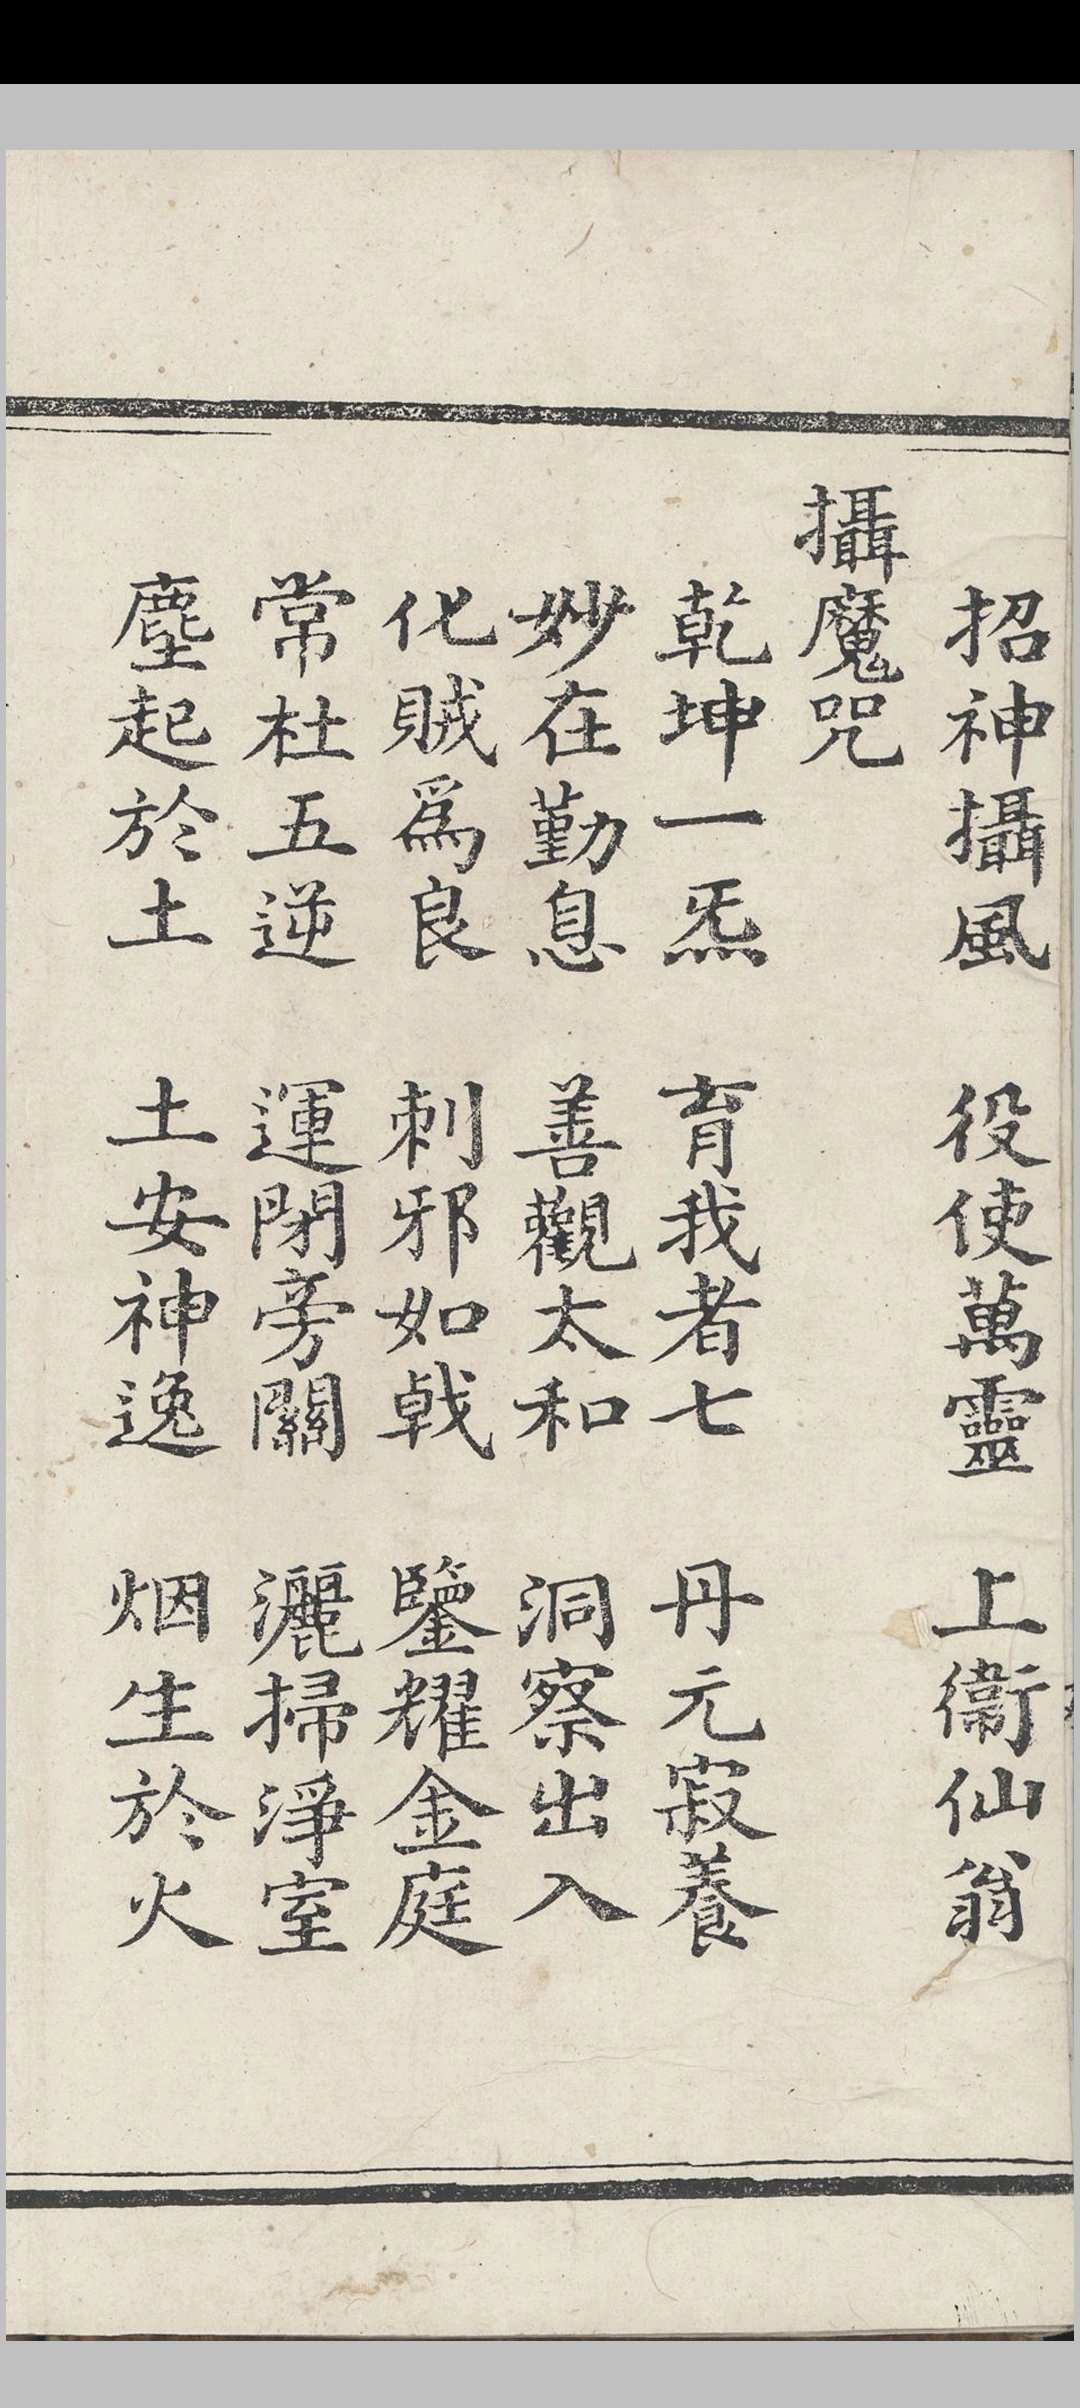 招神攝風　役使萬靈　上衞仙翁
攝魔咒
乾坤一炁　育我者七　丹元寂養
妙在勤息　善觀太和　洞察出入
化賊爲良　刺邪如戟　鑒耀金庭
常杜五逆　運閉旁關　灑掃淨室
塵起於土　土安神逸　烟生於火